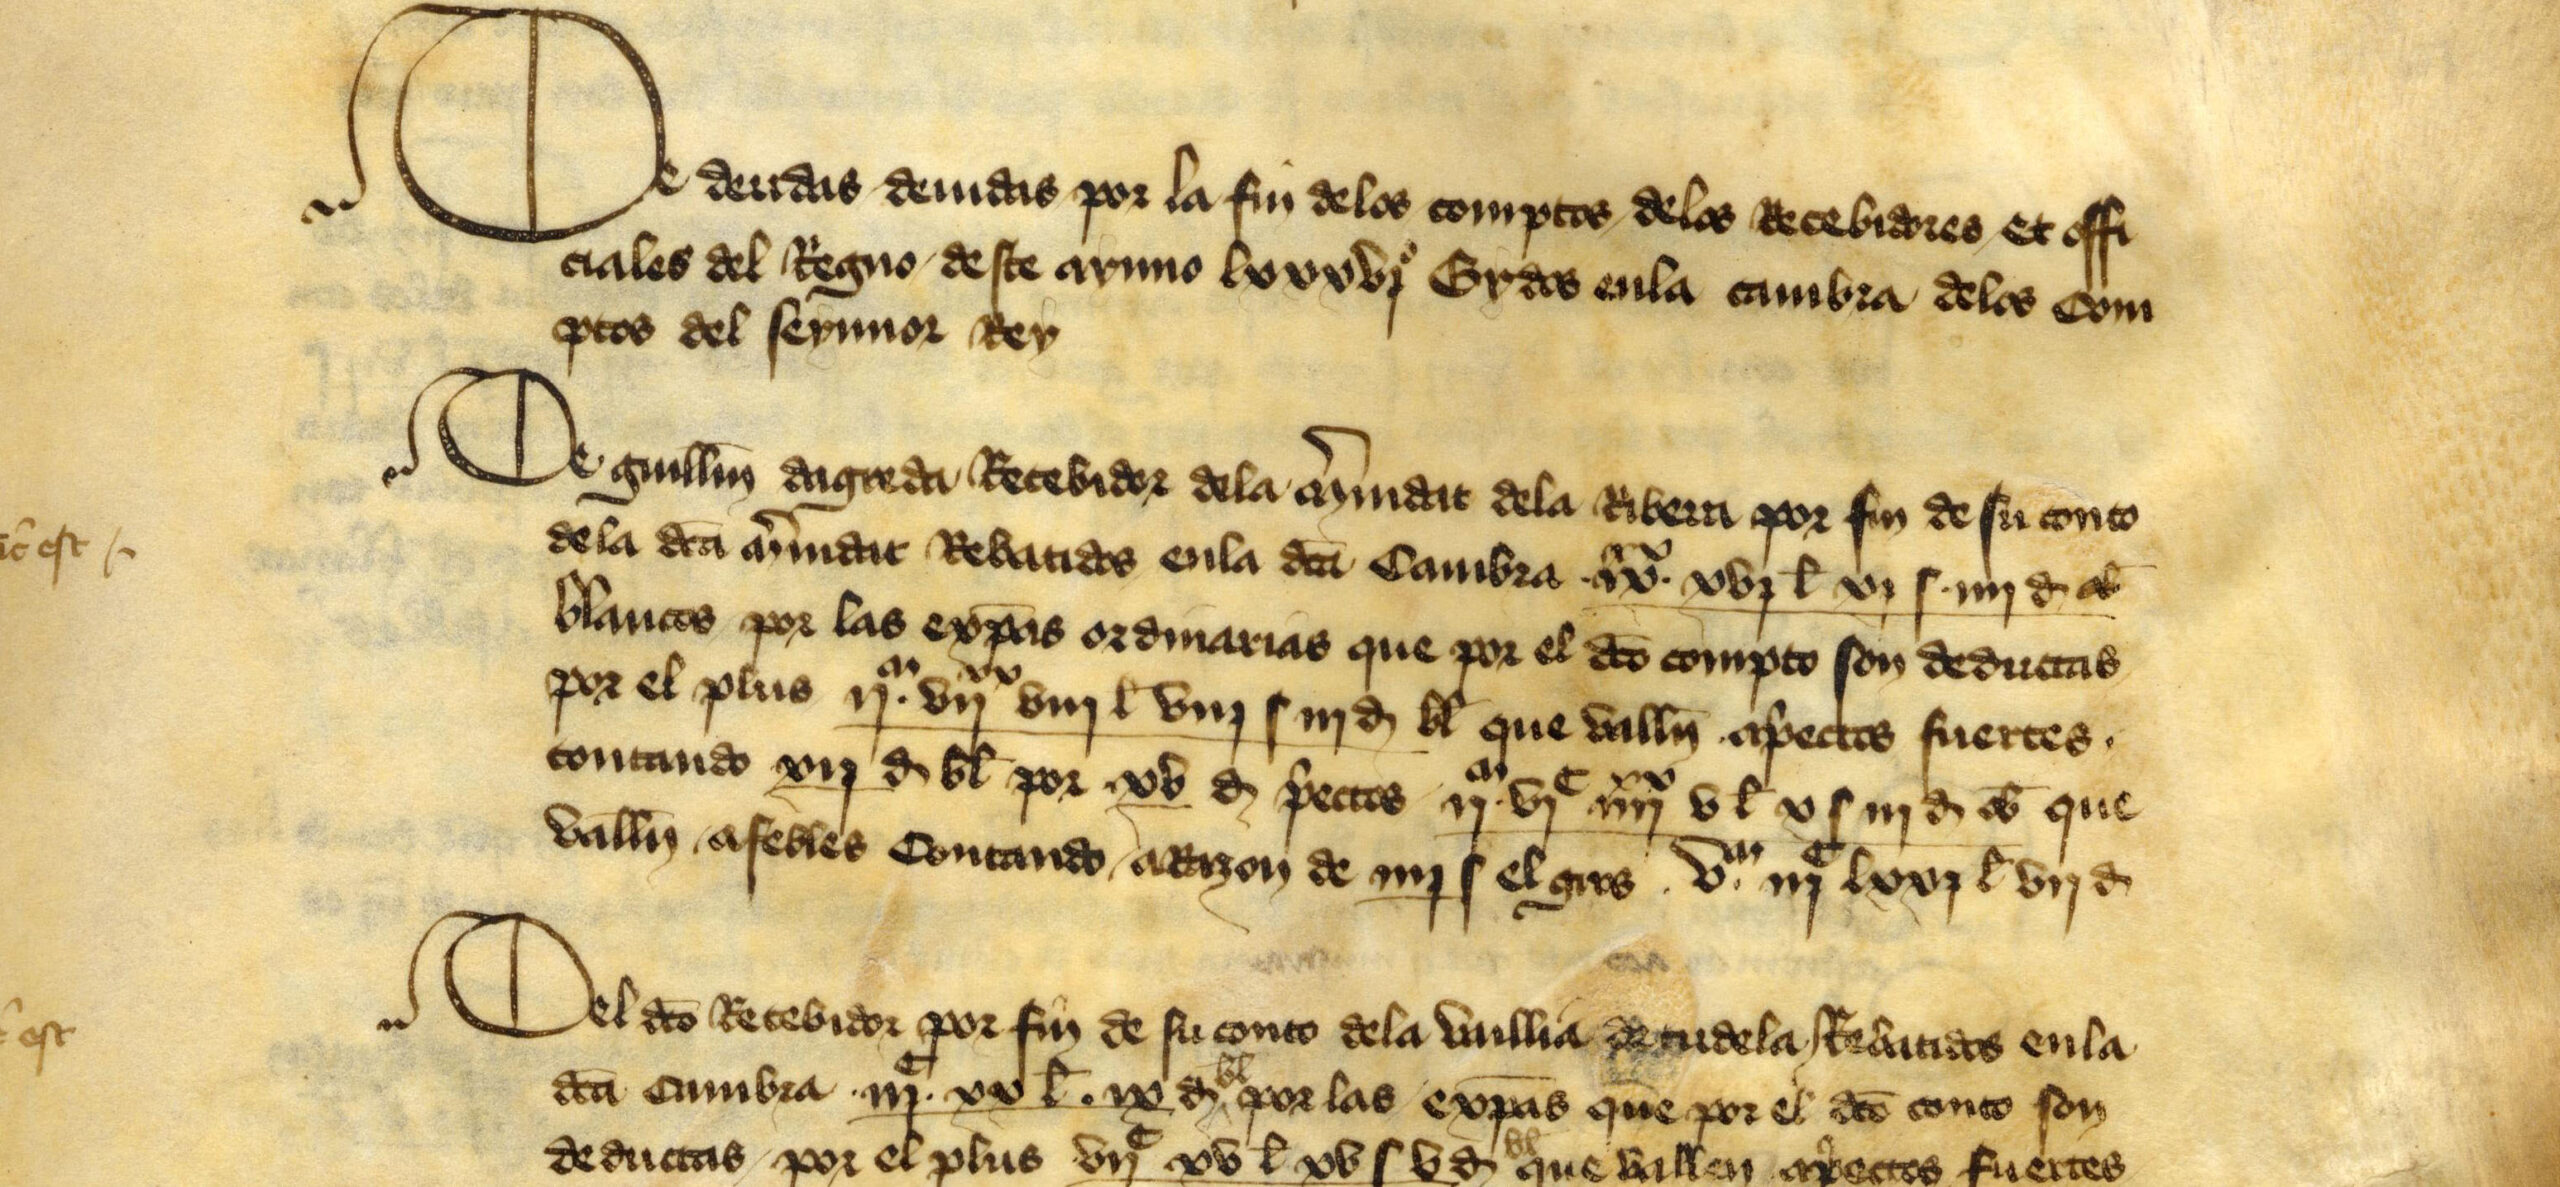 De deudas deuidas por la fin delos comptos delos Recebidores et offi
ciales del Regno deste aynno lxxxvjº Oydos enla cambra delos Com
ptos del seynnor Rey
De guillm̄ dagreda Recebidor dela m̄indat dela Ribera por fin de su conto
dela dc̄a m̄indat Rebatidos enla dc̄a Cambra xvj l̄ xj s iiij d ob̄
blancos por las exp̄as ordinarias que por el dc̄o compto son deductas
por el plus ijᵐ vijˣˣ viij l̄ viij s iij d bl̄ que vallēn a p̄ectos fuertes
contando xij d bl̄ por xv d p̄ectos ijᵐ viᶜ iiijˣˣ v l̄ x s iij d ob̄ que
vallēn a febles Contando a Razon de iiij s el gros vᵐ iijᶜ lxxj l̄ vij d
ic est
Del dc̄o Recebidor por fin de su conto dela baillia de tudela Rebatidos enla
dc̄a Cambra iijᶜ xx l̄ ix d bl por las exp̄as que por el dc̄o conto son
deductas por el plus vijᶜ xv l̄ xv s v d bl que vallen a p̄ectos fuertes
est